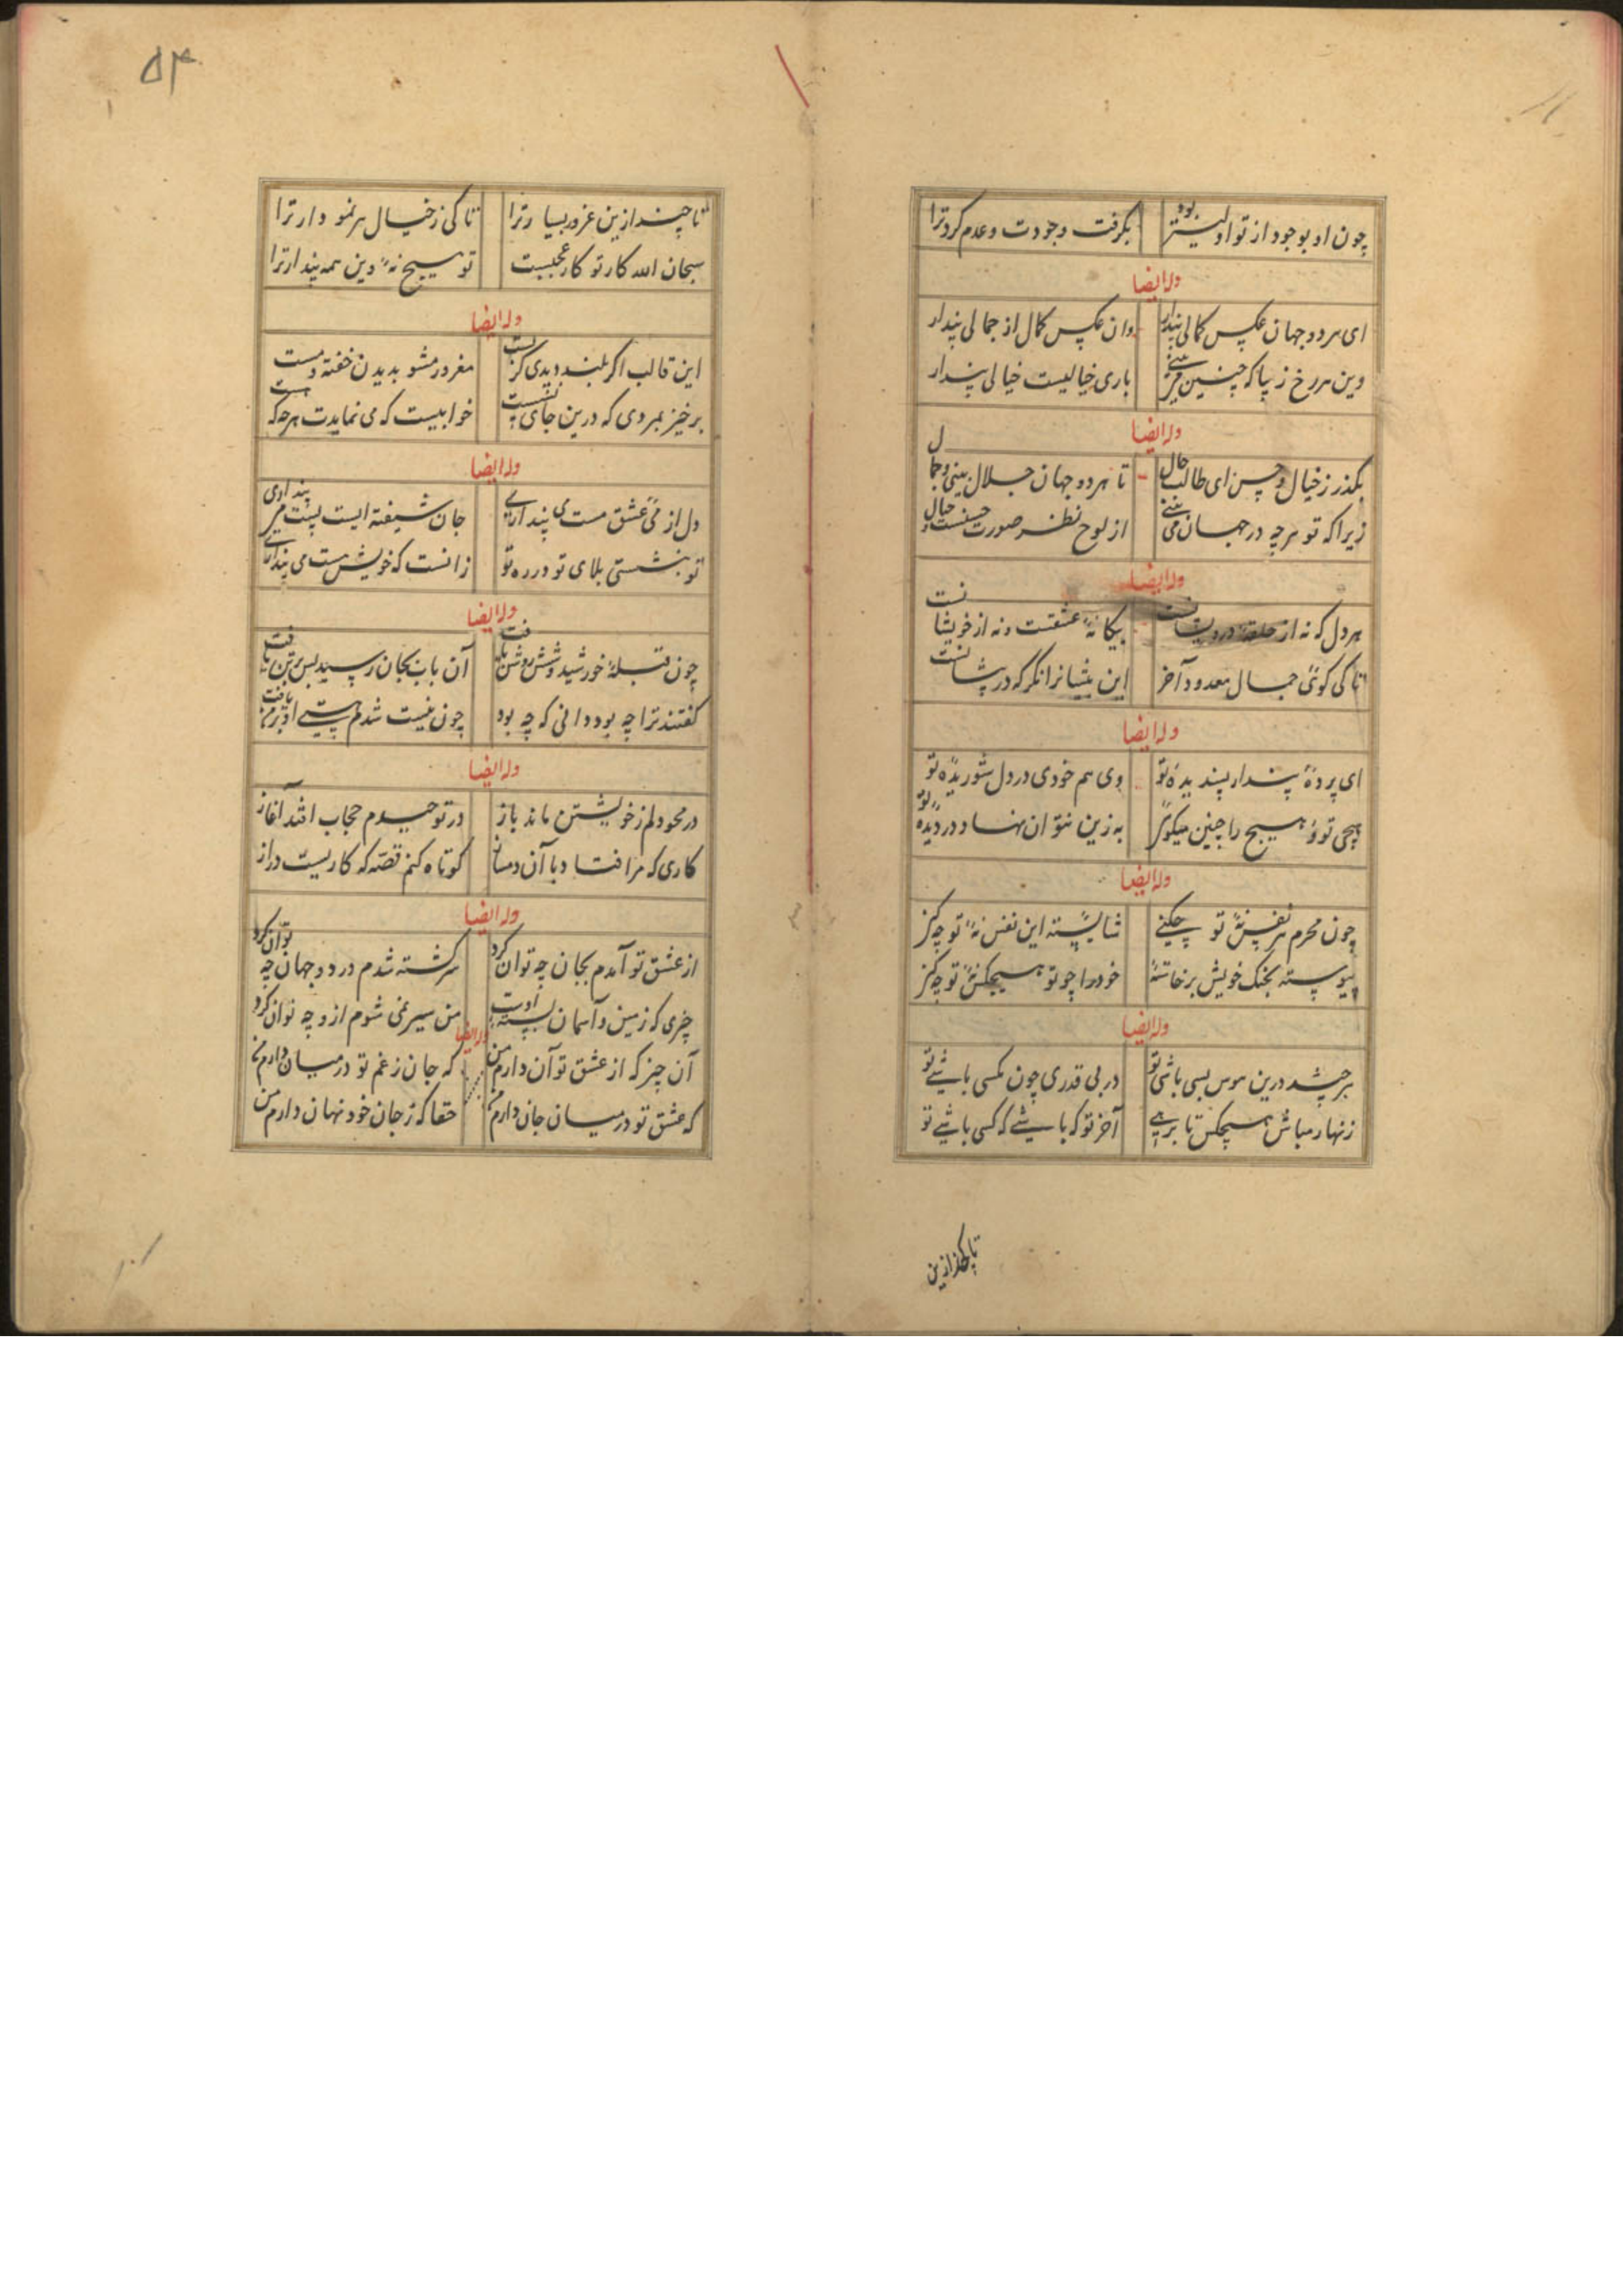 چون او بوجود از تو اولیتر بود بگرفت وجودت و عدم کرد ترا
وله ایضا
ای هر دو جهان عکس کمالی پندار وان عکس کمال از جمالی پندار
وین هر رخ زیبا که چنین می بینی باری خیالیست خیالی پندار
وله ایضا
بگذر ز خیال و حس ای طالب حال تا هر دو جهان جلال بینی و جمال
زیرا که تو هر چه در جهان می بینی از لوح نظر صورت حسنست و خیال
وله ایضا
هر دل که نه از حلقهٔ درویشانست بیکانهٔ عشقست و نه از خویشانست
تا کی کوئی جمال معدود آخر این بیشانرا نگر که در پیشانست
وله ایضا
ای پردهٔ پندار پسندیدهٔ تو وی هم خودی در دل شوریدهٔ تو
هیچی تو و هیچ را چنین میکوئی به زین نتوان نهاد در دیدهٔ تو
وله ایضا
چون محرم هر نفس نهٔ تو چکنی شایستهٔ این نفس نهٔ تو چه کنی
پیوسته بجنک خویش برخاستهٔ خود را چو تو هیچکس نهٔ تو چه کنی
وله ایضا
هر چند درین هوس بسی باشی تو در بی قدری چون مکسی باشی تو
زنهار مباش هیچکس تا برهی آخر تو که باشی که کسی باشی تو
۵۴
تا چند ازین غرور بسیار ترا تا کی ز خیال هر نمودار ترا
سبحان الله کار تو کار عجبست تو هیچ نهٔ وین همه پندار ترا
وله ایضا
این قالب اکر بلند دیدی کر پست مغرور مشو بدیدن خفته و مست
برخیز بمردی که درین جای نشست خوابیست که می نمایدت هر چه که هست
وله ایضا
دل از می عشق مست می پنداری جان شیفتهٔ الست می پنداری
تو نیستی بلای تو در ره تو زانست که خویش هست می پنداری
وله ایضا
چون قبلهٔ خورشید وشش روشن یافت آن باب بجان رسید پس بر تن تافت
کفتند ترا چه بود دانی که چه بود چون نیست شدم هستی او بر من تافت
وله ایضا
در محو دلم ز خویشتن ماند باز در توحیدم حجاب افتد آغاز
کاری که مرا فتاد با آن دمساز کوتاه کنم قصه که کاریست دراز
وله ایضا
از عشق تو آمدم بجان چه توان کرد سرکشته شدم در دو جهان چه توان کرد
چیزی که زمین و آسمان بستهٔ اوست من سیر نمی شوم ازو چه توان کرد
وله ایضا
آن چیز که از عشق تو آن دارم من که جان ز غم تو در میان دارم من
که عشق تو در میان جان دارم من حقا که ز جان خود نهان دارم من